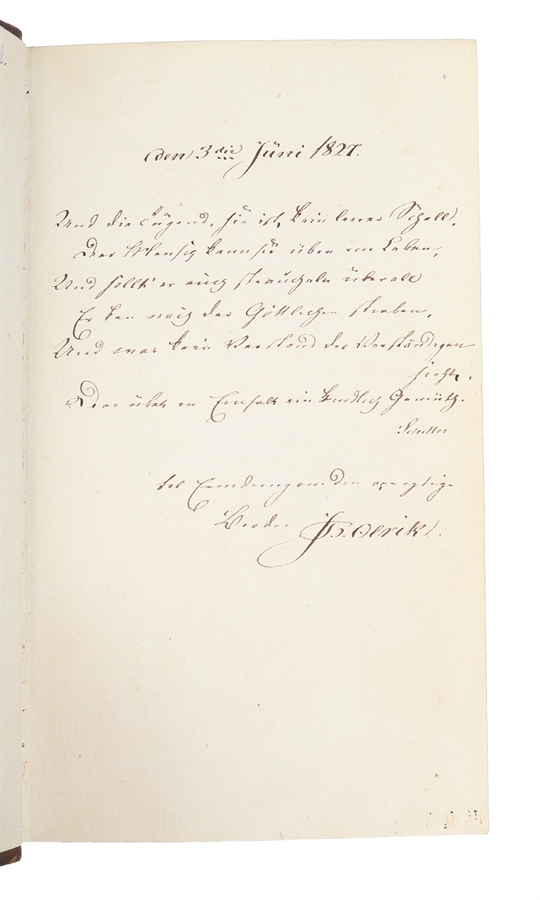 den 3die Jüni 1827.
Und die Tugend, sie ist kein leerer Schall,
Der Mensch kann sie üben im Leben,
Und sollt' er auch straucheln überall
Er kan nach der Göttlichen streben,
Und was kein Verstand der Verständigen
sieht,
Das übet in Einfalt ein kindlich Gemüth.
Schiller
Broder